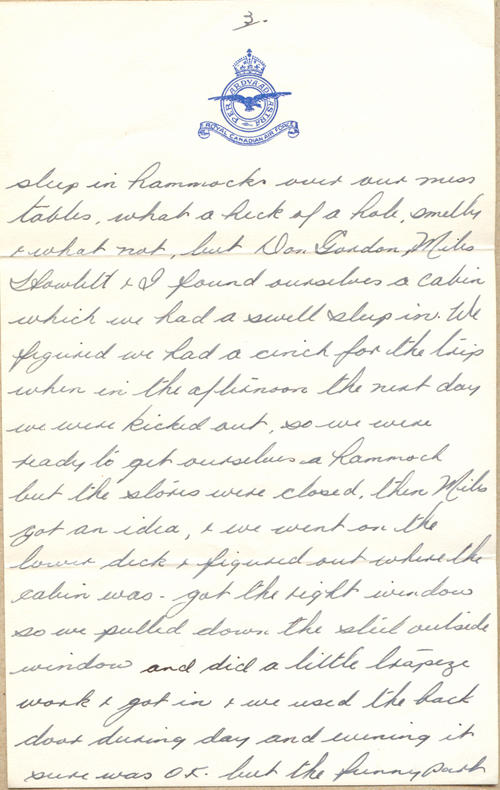 3.
PER ARDUA AD ASTRA
ROYAL CANADIAN AIR FORCE
sleep in hammocks over our mess
tables, what a heck of a hole, smelly
& what not, but Don Gordon, Miles
Howlett & I found ourselves a cabin
which we had a swell sleep in. We
figured we had a cinch for the trip
when in the afternoon the next day
we were kicked out, so we were
ready to get ourselves a hammock
but the stores were closed, then Miles
got an idea, & we went on the
lower deck & figured out where the
cabin was - got the right window
so we pulled down the steel outside
window and did a little trapeze
work & got in & we used the back
door during day and evening it
sure was O.K. but the funny part